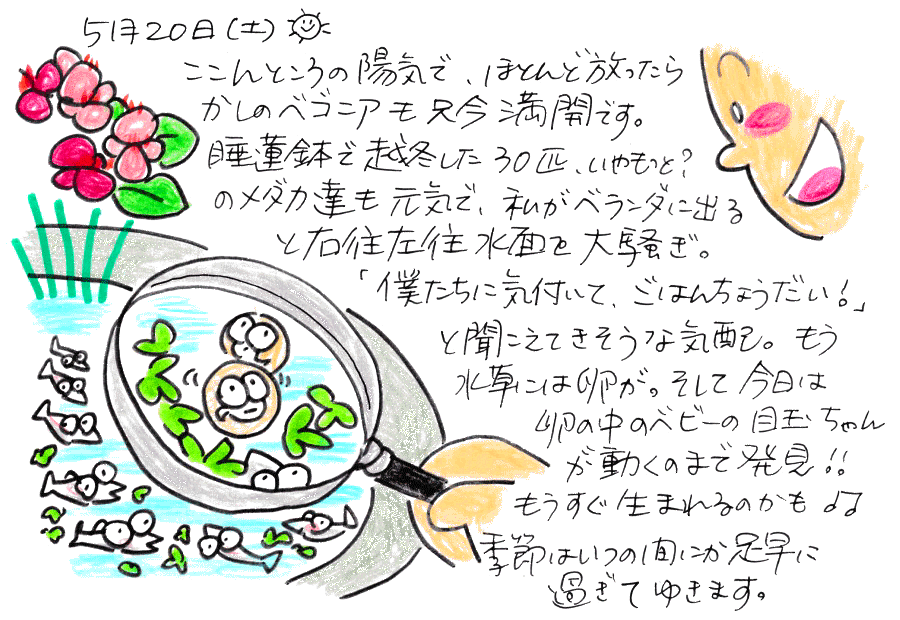 5月20日(土)
ここんところの陽気で、ほとんど放ったら
かしのベゴニアも只今満開です。
睡蓮鉢で越冬した30匹、いやもっと?
のメダカ達も元気で、私がベランダに出る
と右往左往水面を大騒ぎ。
「僕たちに気付いて、ごはんちょうだい!」
と聞こえてきそうな気配。もう
水草には卵が。そして今日は
卵の中のベビーの目玉ちゃん
が動くのまで発見!!
もうすぐ生まれるのかも♪♪
季節はいつの間にか足早に
過ぎてゆきます。